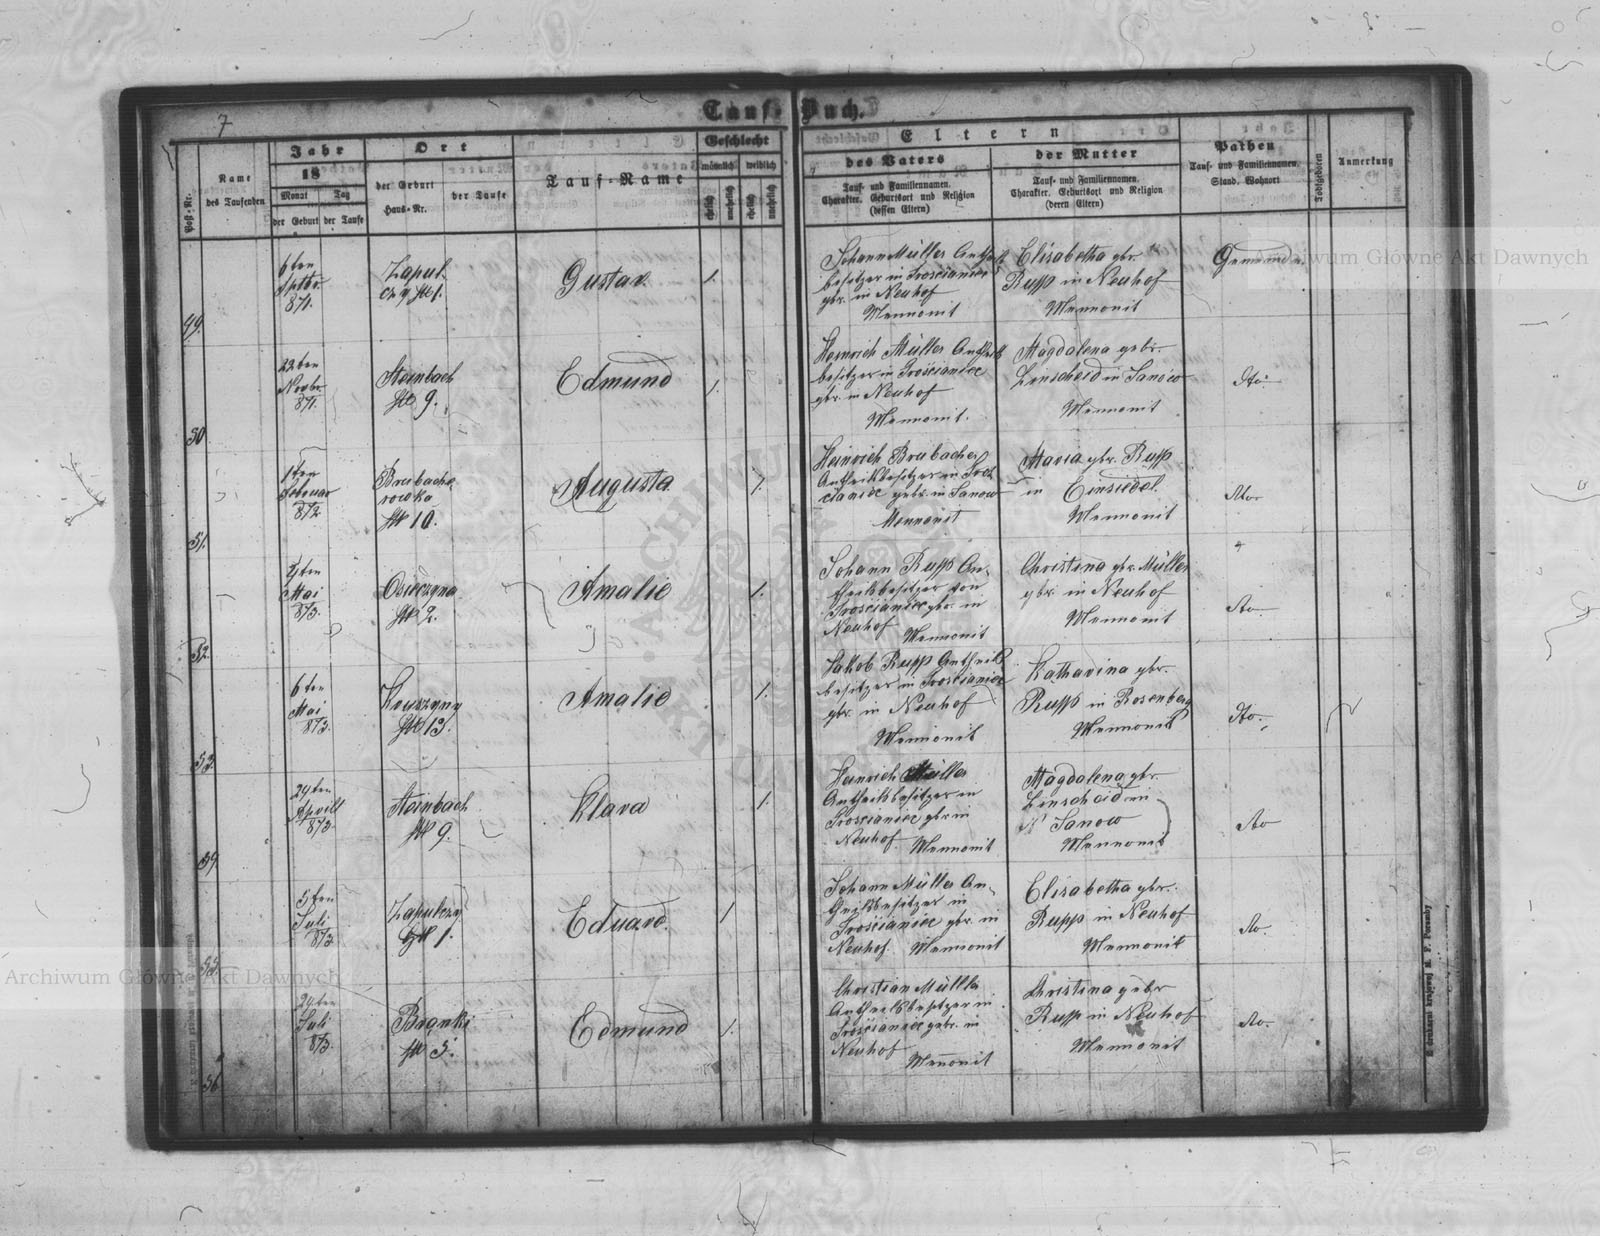 7
Tauf-Buch.
Post-Nr.
Name
des Taufenden
Jahr
18
Monat
Tag
der Geburt
der Taufe
Ort
der Geburt
Haus-Nr.
der Taufe
Tauf-Name
Geschlecht
männlich
weiblich
ehelich
unehelich
ehelich
unehelich
Eltern
des Vaters
Tauf- und Familiennamen.
Charakter. Geburtsort und Religion
(dessen Eltern)
der Mutter
Tauf- und Familiennamen.
Charakter. Geburtsort und Religion
(deren Eltern)
Pathen
Tauf- und Familiennamen.
Stand. Wohnort
Todtgeboren
Anmerkung
49.
6ten
Sptbr.
871.
Zapul
czy № 1.
Gustav.
1.
Johann Müller Antheil
besitzer in Trościaniec
gbr. in Neuhof
Mennonit
Elisabetha gbr.
Rupp in Neuhof
Mennonit
Gemeinde
50
22ten
Novbr
871.
Steinbach
№ 9.
Edmund
1.
Heinrich Müller Antheils
besitzer in Trościaniec
gbr. in Neuhof
Mennonit.
Magdalena gebr.
Linscheid in Janow
Mennonit
dto.
51.
1ten
Februar
872
Brubache
rowka
№ 10.
Augusta.
1.
Heinrich Brubacher
Antheilsbesitzer in Troś
cianiec gebr. in Janow
Mennonit
Maria gbr. Rupp
in Einsiedel.
Mennonit
dto.
52.
Mai
873.
Osieczyna
№ 2.
Amalie
1.
Johann Rupp An-
theilsbesitzer von
Trościaniec gbr. in
Neuhof Mennonit
Christina gbr. Müller
gbr. in Neuhof
Mennonit
dto
53.
6ten
Mai
873.
№ 13.
Amalie
1.
Jakob Rupp Antheils
besitzer in Trościaniec
gbr. in Neuhof
Mennonit
Katharina gbr.
Rupp in Rosenberg
Mennonit
dto.
54.
29ten
April
873.
Steinbach
№ 9.
Klara
1.
Heinrich Müller
Antheilsbesitzer in
Trościaniec gbr. in
Neuhof. Mennonit
Magdalena gbr.
Linscheid in
Janow
Mennonit
dto
55.
5ten
Juli
873
Zapulczy
№ 1.
Eduard.
1
Johann Müller An-
theilsbesitzer in
Trościaniec gbr. in
Neuhof. Mennonit
Elisabetha gbr.
Rupp in Neuhof
Mennonit
dto.
56
24ten
Juli
873.
Branki
№ 5.
Edmund
1.
Christian Müller
Antheilsbesitzer in
Trościaniec gebr. in
Neuhof
Mennonit
Christina gebr
Rupp in Neuhof
Mennonit
dto.
Archiwum Główne Akt Dawnych
Archiwum Główne Akt Dawnych